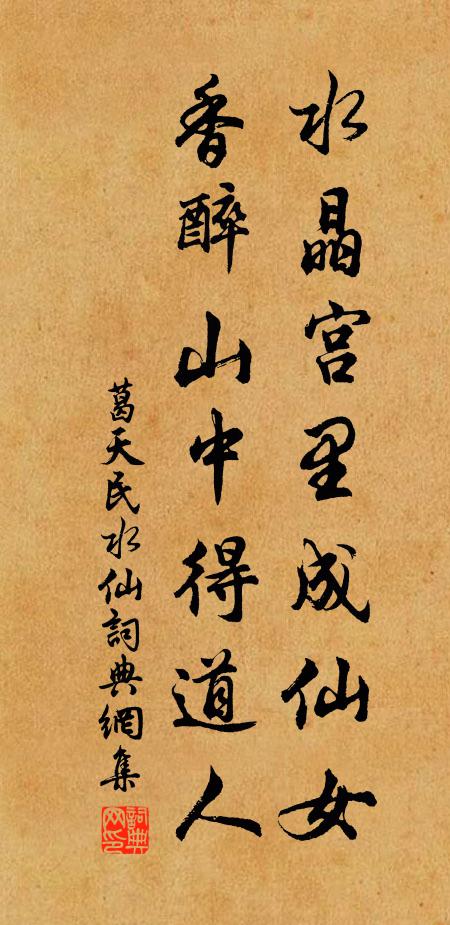 水晶宫里成仙女
香醉山中得道人
葛天民水仙詞典網集
詞典网印